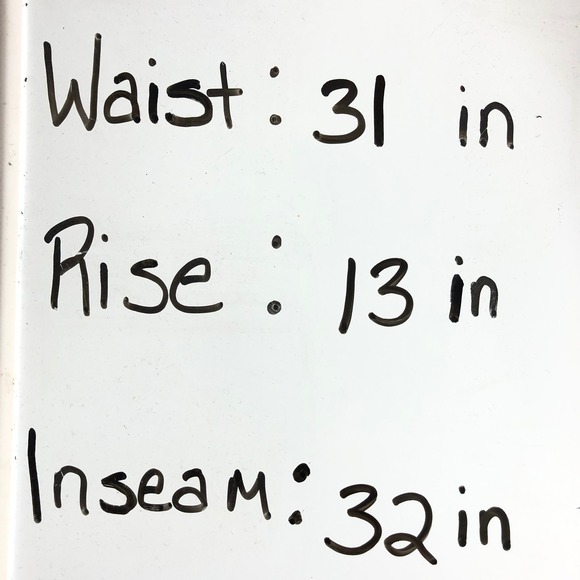 Waist: 31 in
Rise: 13 in
Inseam: 32 in